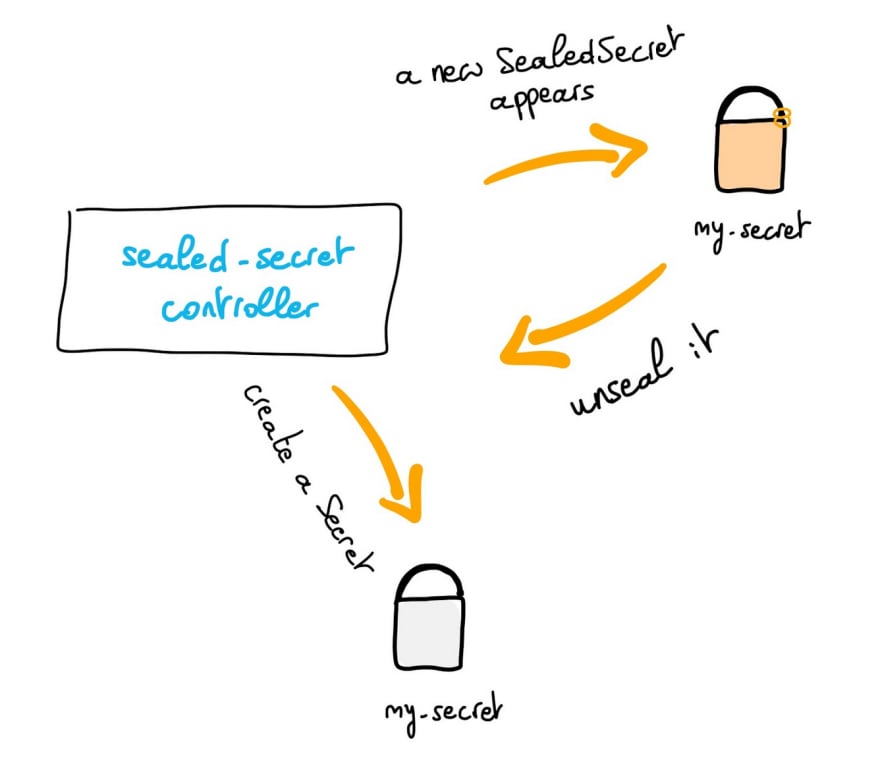 a new SealedSecret
appears
my-secret
sealed-secret
controller
unseal it
create a Secret
my-secret